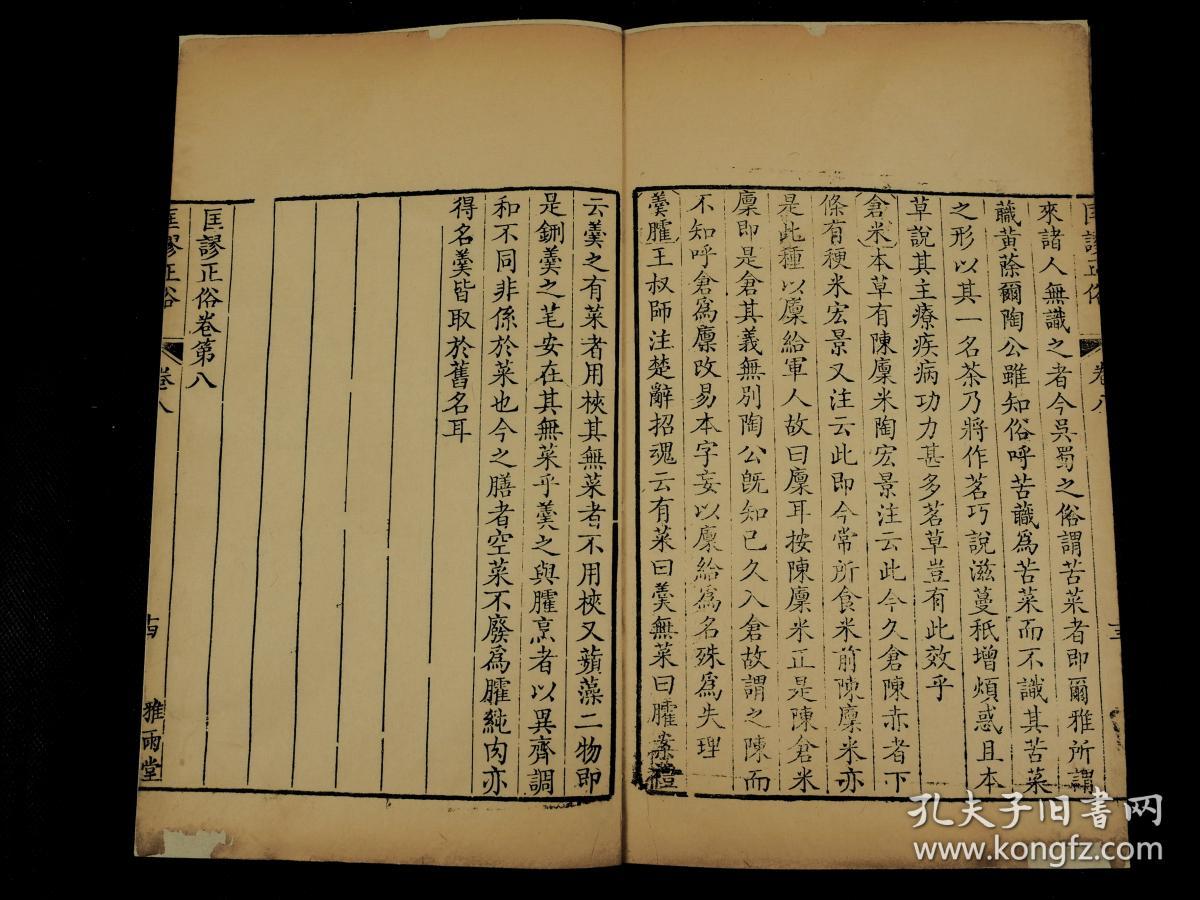 匡謬正俗
卷八
來諸人無識之者今吳蜀之俗謂苦菜者即爾雅所謂
蘵黃蒢爾陶公雖知俗呼苦蘵爲苦菜而不識其苦菜
之形以其一名茶乃將作茗巧說滋蔓秖增煩惑且本
草說其主療疾病功力甚多茗草豈有此效乎
倉米本草有陳廩米陶宏景注云此今久倉陳赤者下
條有稉米宏景又注云此即今常所食米前陳廩米亦
是此種以廩給軍人故曰廩耳按陳廩米正是陳倉米
廩即是倉其義無別陶公旣知已久入倉故謂之陳而
不知呼倉爲廩改易本字妄以廩給爲名殊爲失理
羹臛王叔師注楚辭招魂云有菜曰羹無菜曰臛案禮
云羹之有菜者用梜其無菜者不用梜又蘋藻二物即
是鉶羹之芼安在其無菜乎羹之與臛烹者以異齊調
和不同非係於菜也今之膳者空菜不廢爲臛純肉亦
得名羹皆取於舊名耳
匡謬正俗卷第八
匡謬正俗
卷八
十四
雅雨堂
孔夫子旧书网
www.kongfz.com